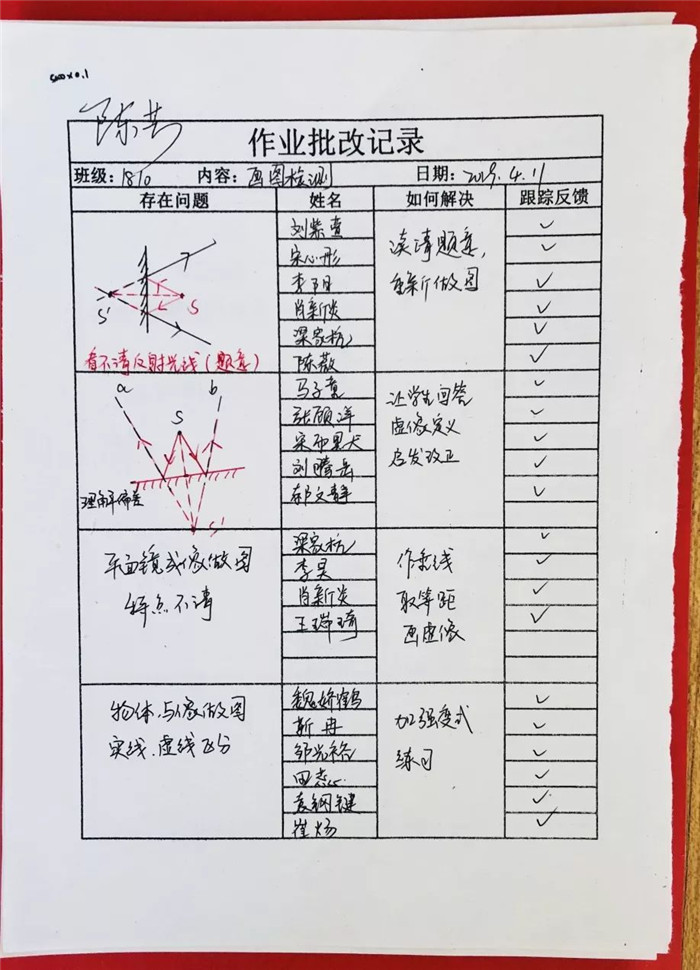 500×0.1
作业批改记录
班级：1810 内容：画图检测 日期：2019.4.11
存在问题 姓名 如何解决 跟踪反馈
S' S
看不清反射光线（题意）
刘紫萱
宋心彤
李子月
肖新炎
梁家杭
陈薇
读清题意，
重新做图
a b
S
理解偏差
S'
马子惠
张颐洋
刘腾岳
郭文静
让学生回答
虚像定义
启发改正
平面镜成像做图
特点不清
梁家杭
李昊
肖新炎
王瑞琦
作垂线
取等距
画虚像
物体、与像做图
实线、虚线不分
魏娇鹤
靳冉
邹光裕
田恋心
袁钢键
崔炀
加强变式
练习